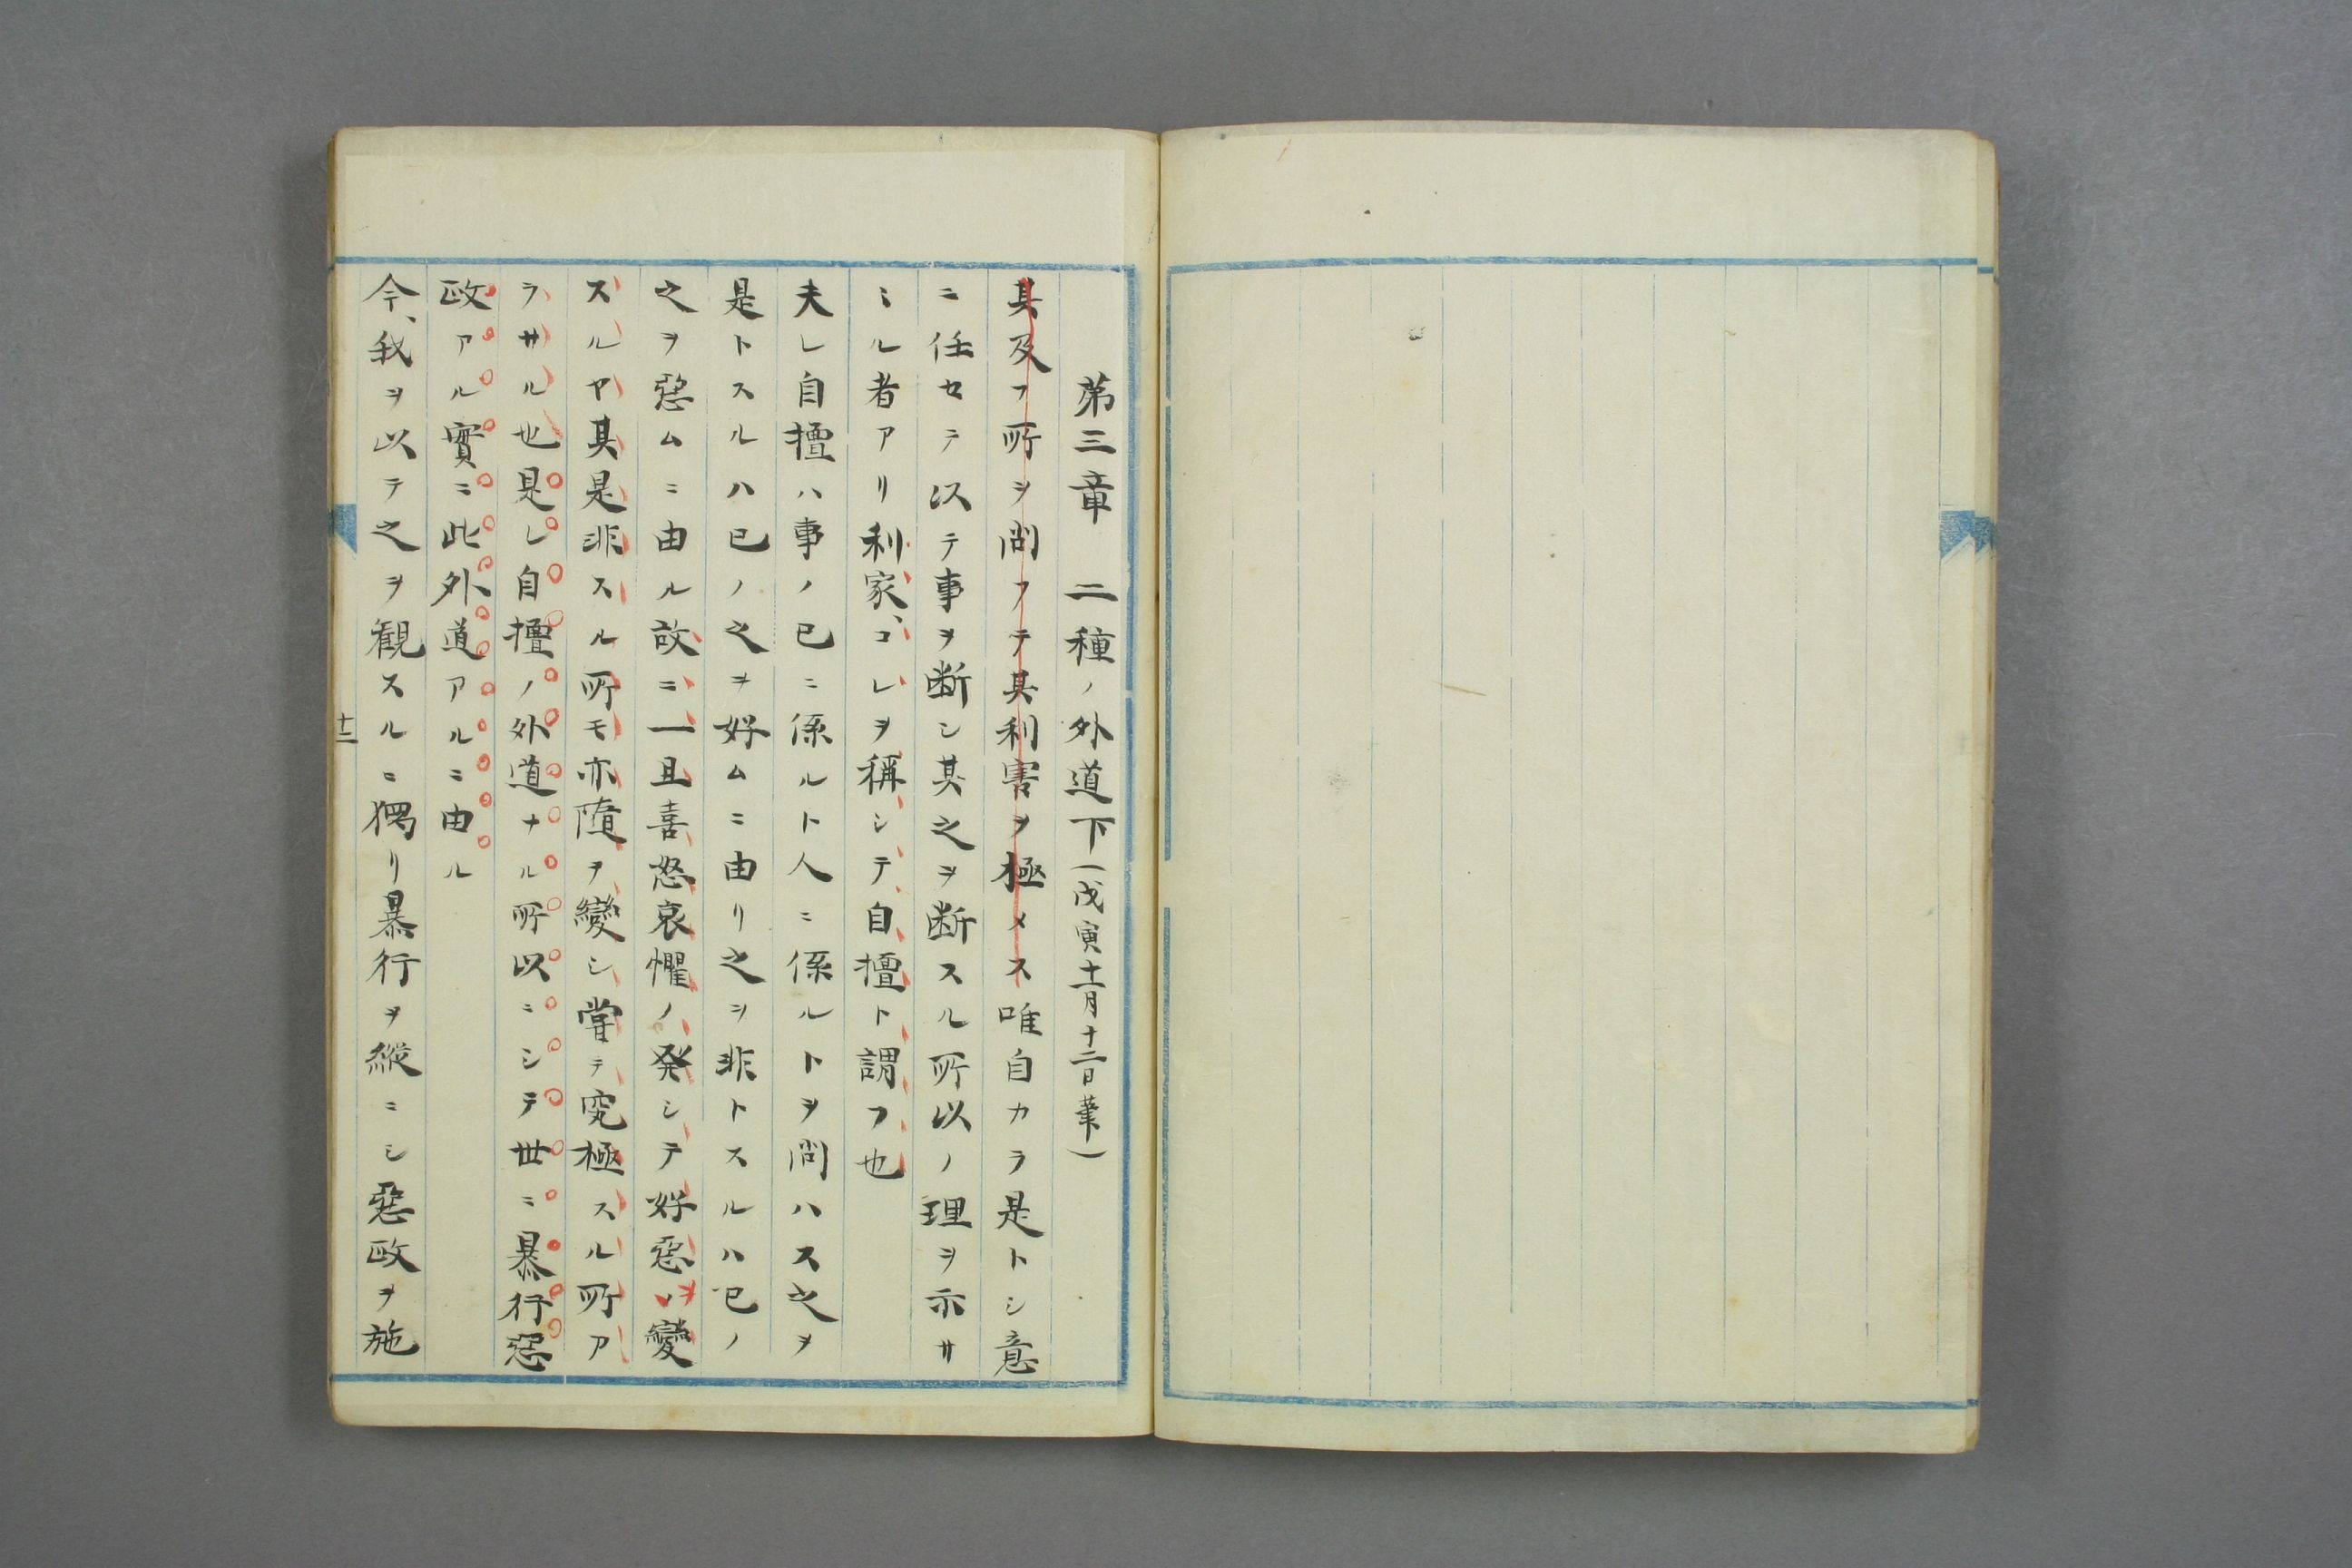 第三章　二種ノ外道下（戊寅十一月十二日筆）
其及フ所ヲ問フテ其利害ヲ極メス唯自カラ是トシ意
ニ任セテ以テ事ヲ断シ其之ヲ断スル所以ノ理ヲ示サ
ミル者アリ利家、コレヲ稱シテ自擅ト謂フ也
夫レ自擅ハ事ノ已ニ係ルト人ニ係ルトヲ問ハス之ヲ
是トスルハ已ノ之ヲ好ムニ由リ之ヲ非トスルハ已ノ
之ヲ惡ムニ由ル故ニ一旦喜怒哀懼ノ発シテ好惡ヲ變
スルヤ其是非スル所モ亦隨ヲ變シ甞テ究極スル所ア
ラサル也是レ自擅ノ外道ナル所以ニシテ世ニ暴行惡
政アル實ニ此外道アルニ由ル
今、我ヲ以テ之ヲ観スルニ獨リ暴行ヲ縦ニシ惡政ヲ施
十二